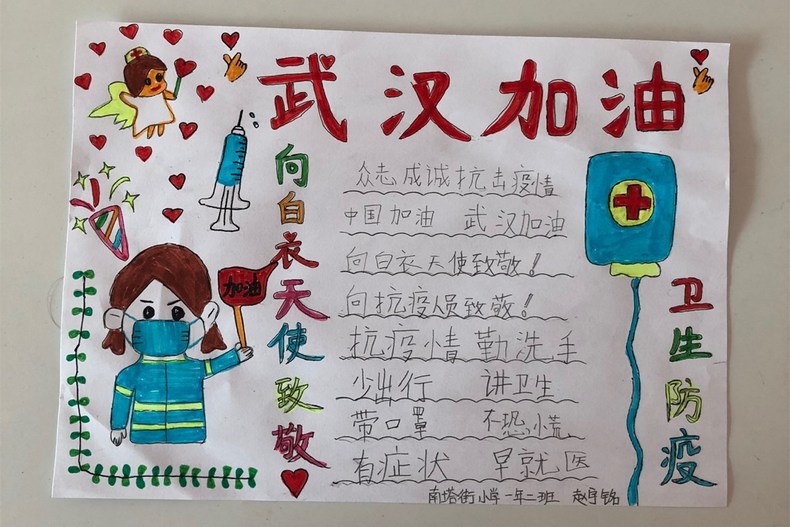 武汉加油
向白衣天使致敬
加油
众志成诚抗击疫情
中国加油 武汉加油
向白衣天使致敬!
向抗疫人员致敬!
抗疫情 勤洗手
少出行 讲卫生
带口罩 不恐慌
有症状 早就医
卫生防疫
南塔街小学一年二班 赵宇铭